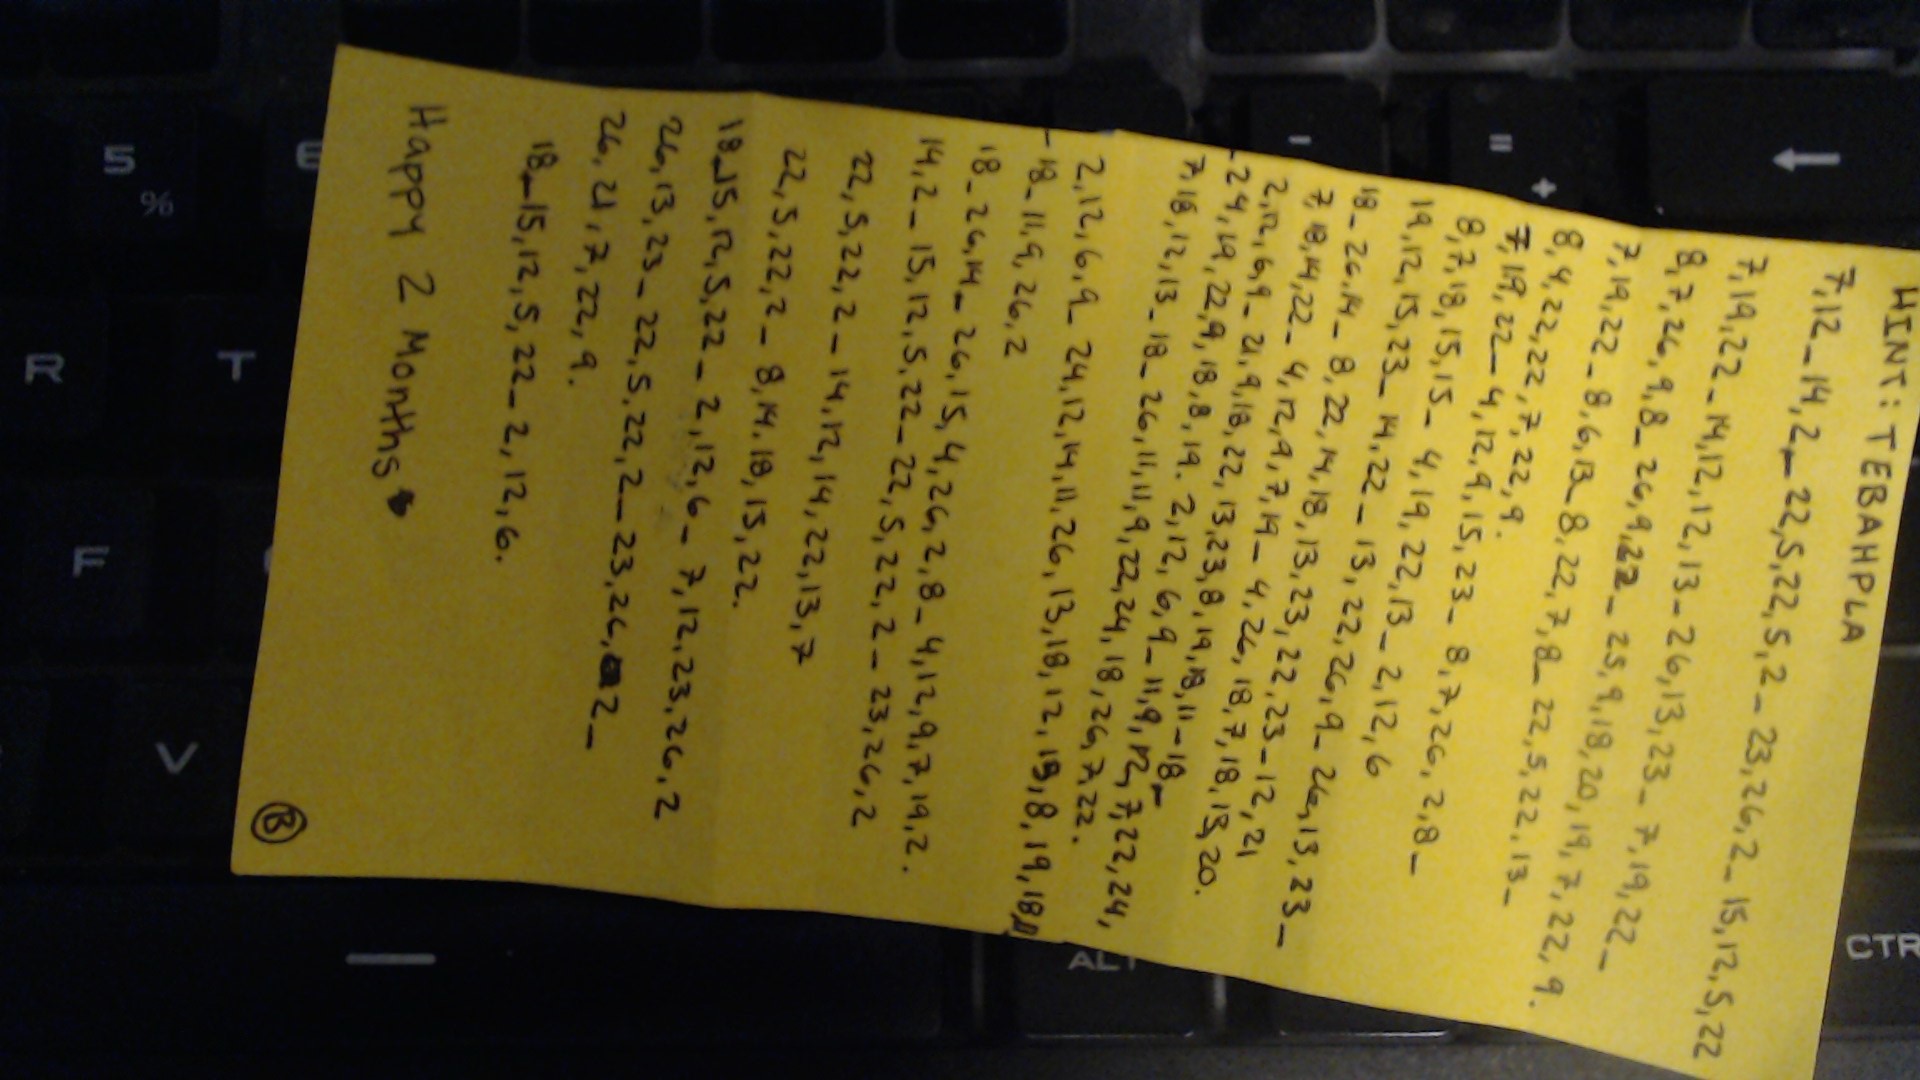 HINT: TEBAHPLA
7,12_14,2_22,5,22,5,2_23,26,2_15,12,5,22
7,19,22_14,12,12,13_26,13,23_7,19,22_
8,7,26,9,8_26,9,22_25,9,18,20,19,7,22,9.
7,19,22_8,6,13_8,22,7,8_22,5,22,13_
8,4,22,22,7,22,9.
7,19,22_4,12,9,15,23_8,7,26,2,8_
8,7,18,15,15_4,19,22,13_2,12,6
19,12,15,23_14,22_13,22,26,9_26,13,23_
18_26,14_8,22,14,18,13,23,22,23_12,21
7,18,14,22_4,12,9,7,19_4,26,18,7,18,13,20.
2,12,6,9_21,9,18,22,13,23,8,19,18,11_18_
24,19,22,9,18,8,19. 2,12,6,9_11,9,12,7,22,24,
7,18,12,13_18_26,11,11,9,22,24,18,26,7,22.
2,12,6,9_24,12,14,11,26,13,18,12,13,8,19,18,11
_18_11,9,26,2
18_26,14_26,15,4,26,2,8_4,12,9,7,19,2.
14,2_15,12,5,22_22,5,22,2_23,26,2
22,5,22,2_14,12,14,22,13,7
22,5,22,2_8,14,18,15,22.
18_15,12,5,22_2,12,6_7,12,23,26,2
26,13,23_22,5,22,2_23,26,2_
26,21,7,22,9.
18_15,12,5,22_2,12,6.
Happy 2 Months
B
5
%
6
R
T
F
V
-
=
+
←
ALT
CTR